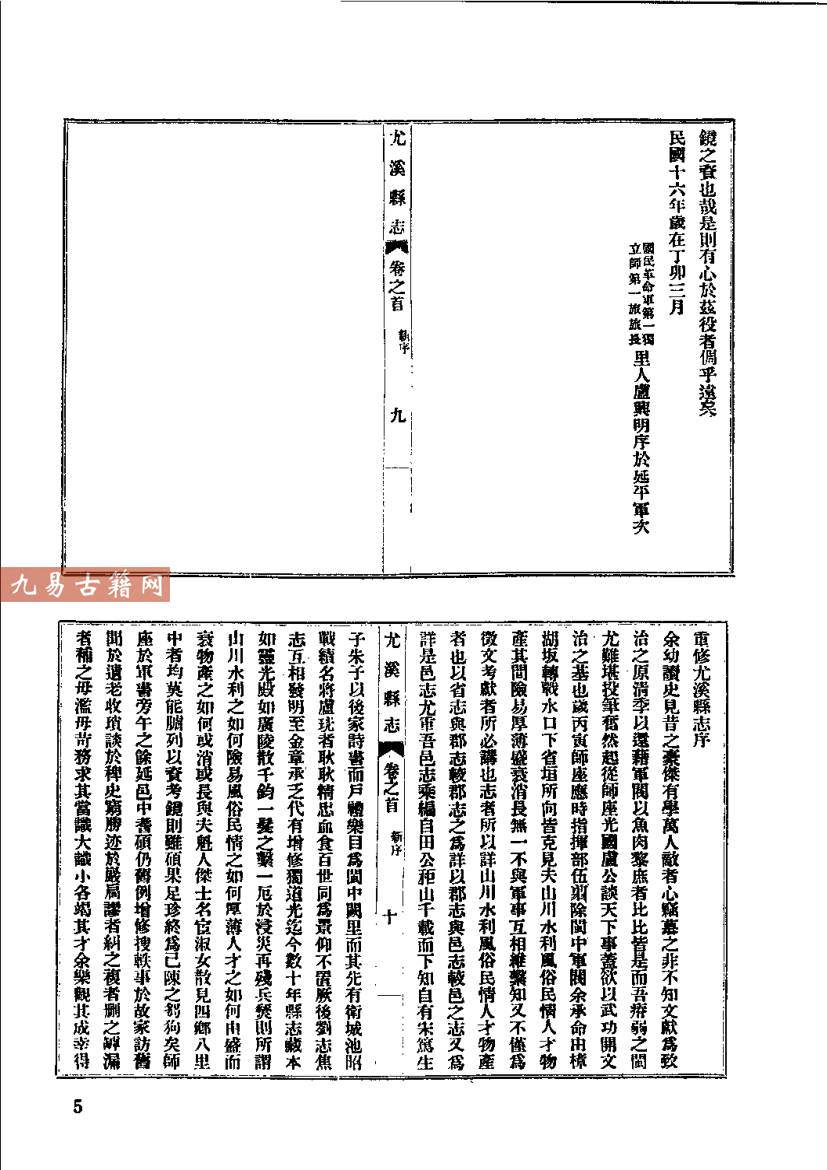 鏡之資也哉是則有心於茲役者倜乎遠矣
民國十六年歲在丁卯三月
國民革命軍第一獨
立師第一旅旅長
里人盧興明序於延平軍次
尤溪縣志
卷之首
新序
九
九易古籍网
重修尤溪縣志序
余幼讀史見昔之豪傑有學萬人敵者心竊慕之非不知文獻爲致
治之原清季以還藉軍閥以魚肉黎庶者比比皆是而吾瘠弱之閩
尤難堪投筆奮然起從師座光國盧公談天下事蓋欲以武功開文
治之基也歲丙寅師座應時指揮部伍翦除閩中軍閥余承命由樟
湖坂轉戰水口下省垣所向皆克見夫山川水利風俗民情人才物
產其間險易厚薄盛衰消長無一不與軍事互相維繫知又不僅爲
徵文考獻者所必講也志者所以詳山川水利風俗民情人才物產
者也以省志與郡志較郡志之爲詳以郡志與邑志較邑之志又爲
詳是邑志尤重吾邑志乘編自田公秬山千載而下知自有宋篤生
尤溪縣志
卷之首
新序
十
子朱子以後家詩書而戶禮樂目爲閩中闕里而其先有衛城池昭
戰績名將盧琰者耿耿精忠血食百世同爲景仰不置厥後劉志焦
志互相發明至金章承乏代有增修獨道光迄今數十年縣志藏本
如靈光殿如廣陵散千鈞一髮之繫一厄於浸災再殘兵燹則所謂
山川水利之如何險易風俗民情之如何厚薄人才之如何由盛而
衰物產之如何或消或長與夫魁人傑士名宦淑女散見四鄉八里
中者均莫能臚列以資考鏡則雖碩果足珍終爲已陳之芻狗矣師
座於軍書旁午之餘延邑中耆碩仍舊例增修搜軼事於故家訪舊
聞於遺老收瑣談於稗史窮勝迹於巖扃謬者糾之複者刪之罅漏
者補之毋濫毋苛務求其當識大識小各竭其才余樂觀其成幸得
5